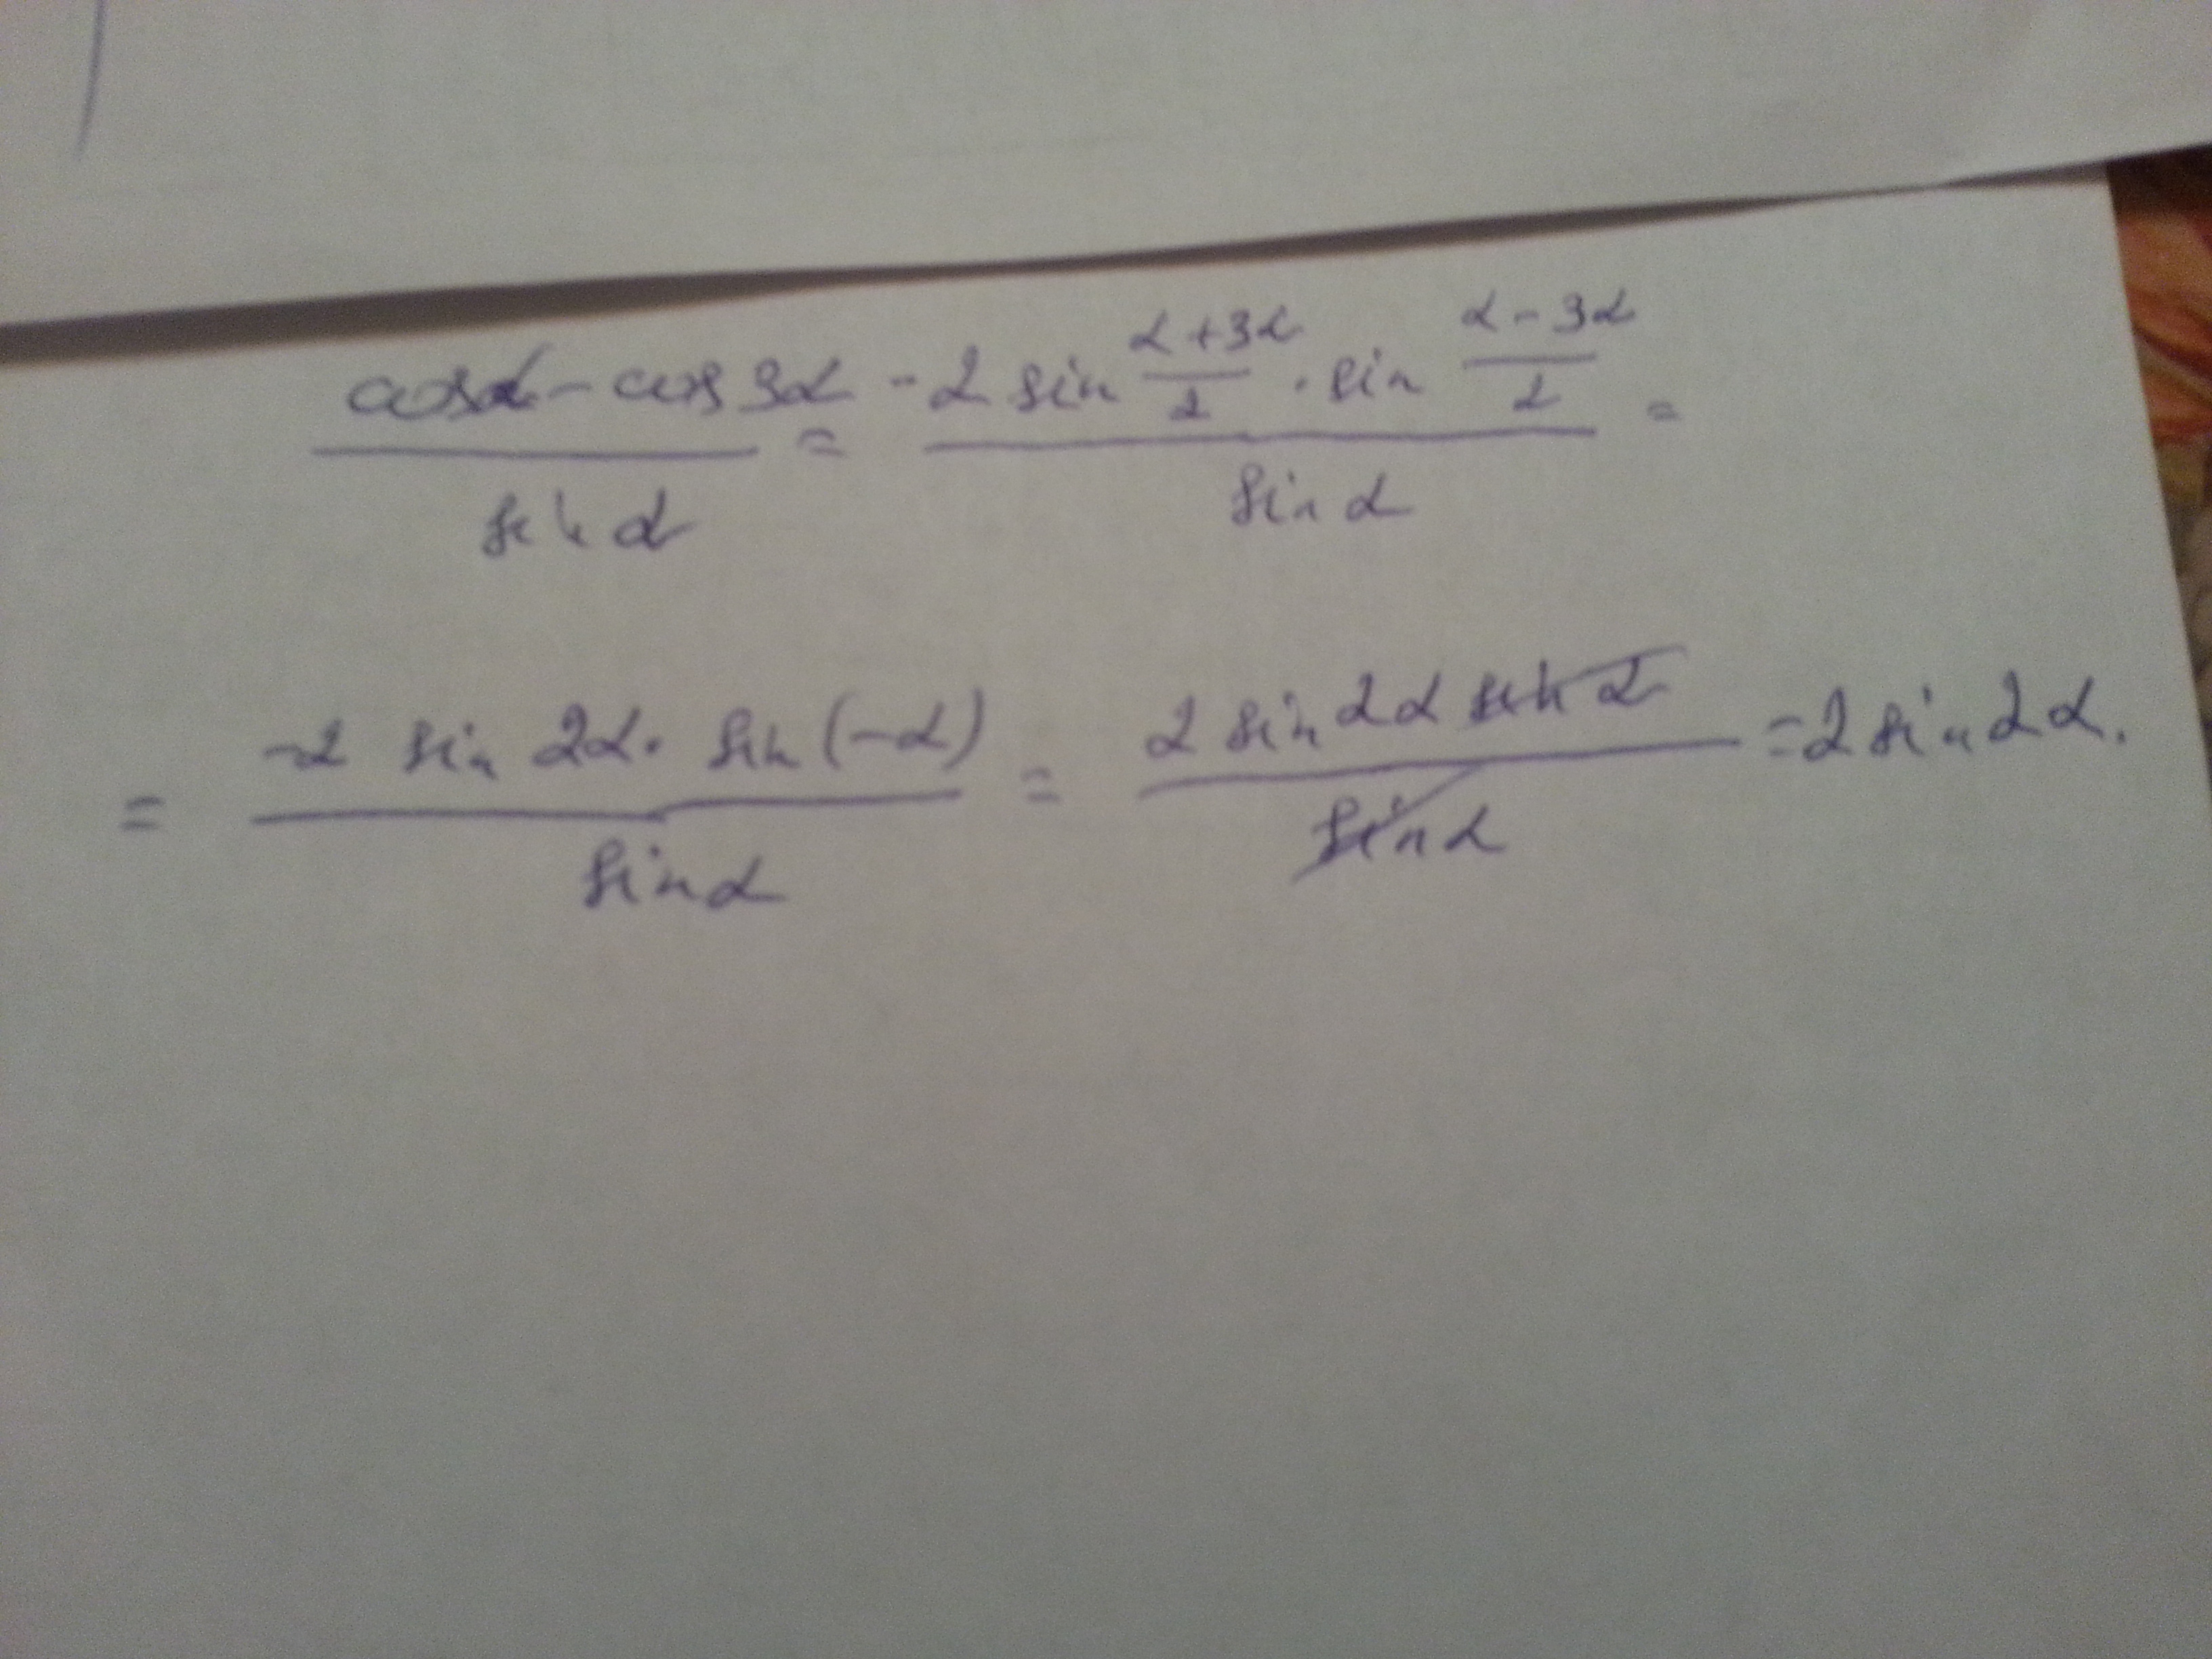 (cosα - cos 3α) / (sin α) = (-2 sin (α+3α)/2 · sin (α-3α)/2) / (sin α) =
= (-2 sin 2α · sin (-α)) / (sin α) = (2 sin 2α sin α) / (sin α) = 2 sin 2α.